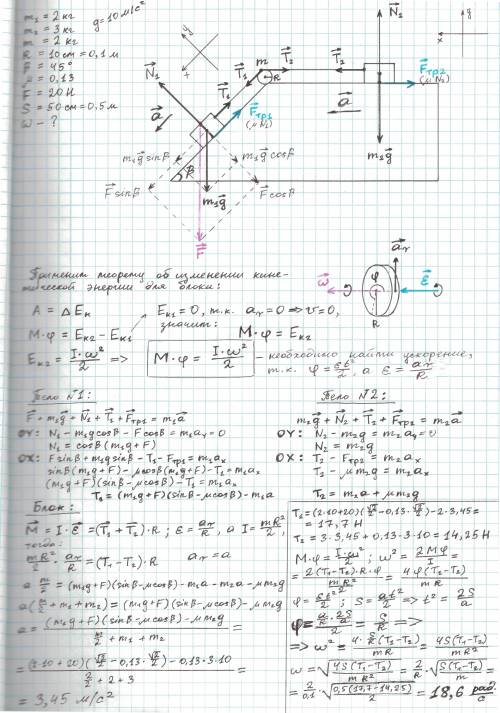 m₁ = 2 кг
m₂ = 3 кг
g = 10 м/с²
m = 2 кг
R = 10 cm = 0,1 м
β = 45°
μ = 0,13
F = 20 Н
S = 50 cm = 0,5 м
ω - ?
N⃗₁
T⃗₁
T⃗₁
m
R
T⃗₂
T⃗₂
N⃗₂
F⃗тр2
(μN₂)
F⃗тр1
(μN₁)
a⃗
a⃗
m₁g⃗sinβ
m₁g⃗cosβ
β
F⃗sinβ
F⃗cosβ
m₁g⃗
F⃗
m₂g⃗
y
x
Применим теорему об изменении кине-
тической энергии для блока:
A = ΔEк
M·φ = Eк2 - Eк1
Eк1 = 0, т.к. aτ = 0 ⇒ v = 0,
значит: M·φ = Eк2
Eк2 = I·ω²/2 ⇒ M·φ = I·ω²/2 - необходимо найти ускорение,
т.к. φ = εt²/2, а ε = aτ/R
a⃗τ
ω⃗
φ
ε⃗
R
Тело N1:
F⃗ + m₁g⃗ + N⃗₁ + T⃗₁ + F⃗тр1 = m₁a⃗
OY: N₁ - m₁gcosβ - Fcosβ = m₁ay = 0
N₁ = cosβ(m₁g + F)
OX: Fsinβ + m₁gsinβ - T₁ - Fтр1 = m₁ax
sinβ(m₁g + F) - μcosβ(m₁g + F) - T₁ = m₁ax
(m₁g + F)(sinβ - μcosβ) - T₁ = m₁ax
T₁ = (m₁g + F)(sinβ - μcosβ) - m₁a
Тело N2:
m₂g⃗ + N⃗₂ + T⃗₂ + F⃗тр2 = m₂a⃗
OY: N₂ - m₂g = m₂ay = 0
N₂ = m₂g
OX: T₂ - Fтр2 = m₂ax
T₂ - μm₂g = m₂ax
T₂ = m₂a + μm₂g
Блок:
M⃗ = I·ε⃗ = (T⃗₁ + T⃗₂)·R; ε = aτ/R, а I = mR²/2,
тогда:
mR²/2 · aτ/R = (T₁ - T₂)·R aτ = a
a m/2 = (m₁g + F)(sinβ - μcosβ) - m₁a - m₂a - μm₂g
a(m/2 + m₁ + m₂) = (m₁g + F)(sinβ - μcosβ) - μm₂g
a = ((m₁g + F)(sinβ - μcosβ) - μm₂g)/(m/2 + m₁ + m₂) =
= ((2·10 + 20)(√2/2 - 0,13·√2/2) - 0,13·3·10)/(2/2 + 2 + 3) =
= 3,45 м/с²
T₁ = (2·10 + 20)(√2/2 - 0,13·√2/2) - 2·3,45 =
= 17,7 Н
T₂ = 3·3,45 + 0,13·3·10 = 14,25 Н
M·φ = I·ω²/2; ω² = 2Mφ/I =
= 2(T₁ - T₂)·R·φ/(mR²/2) = 4φ(T₁ - T₂)/mR
φ = εt²/2; S = at²/2 ⇒ t² = 2S/a
φ = (a/R · 2S/a)/2 = S/R ⇒
⇒ ω² = 4·S/R(T₁ - T₂)/mR = 4S(T₁ - T₂)/mR²
ω = √(4S(T₁ - T₂)/mR²) = 2/R · √(S(T₁ - T₂)/m) =
= 2/0,1 · √(0,5(17,7 - 14,25)/2) = 18,6 рад/с